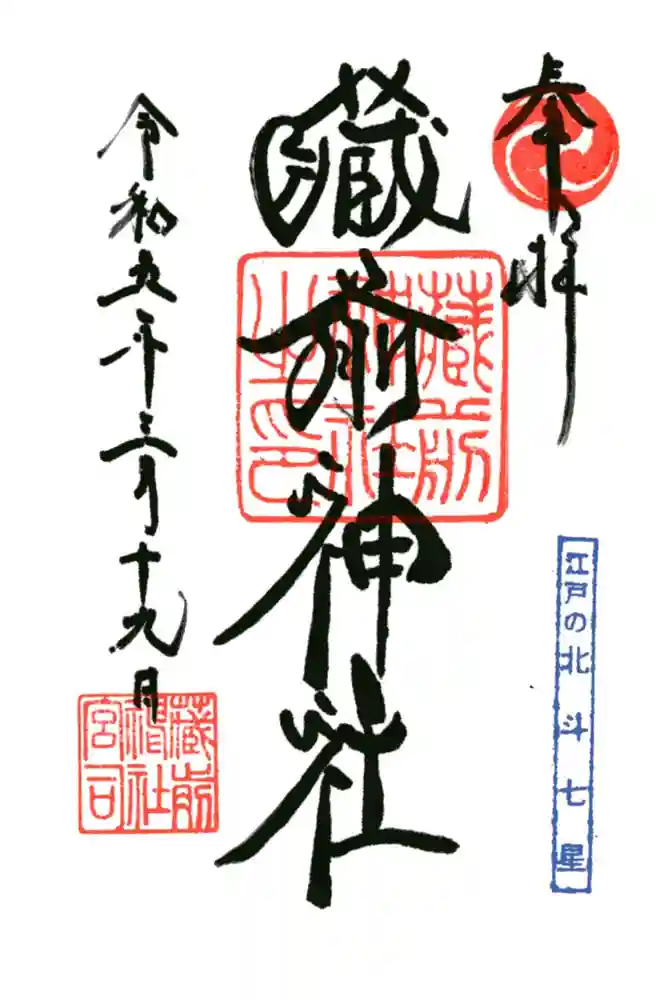 奉拝
江戸の北斗七星
藏前神社
藏前
神社
之印
令和五年三月十九日
蔵前
神社
宮司